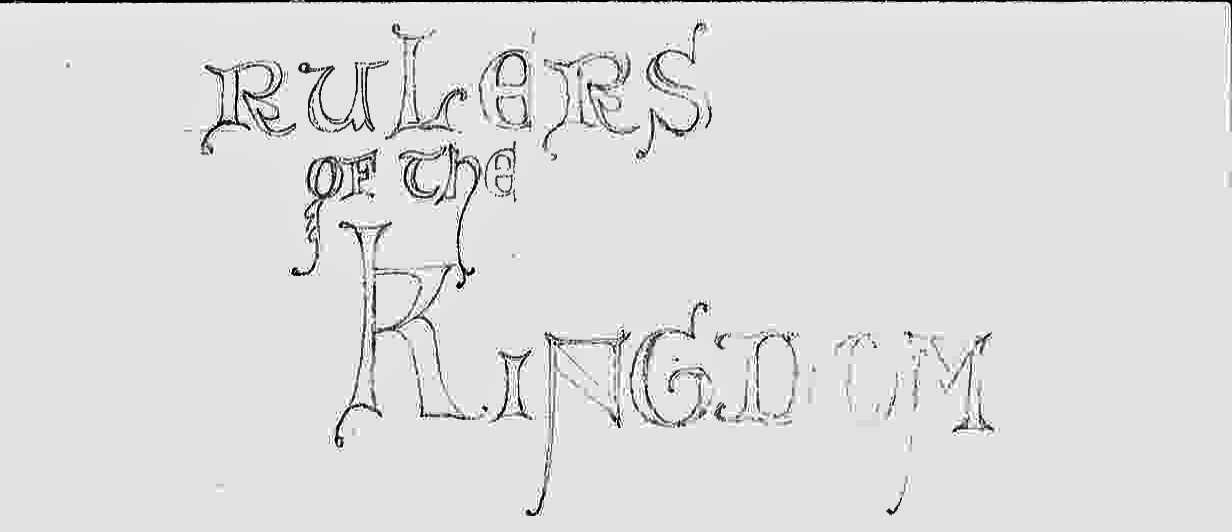 RULERS
OF THE
KINGDOM